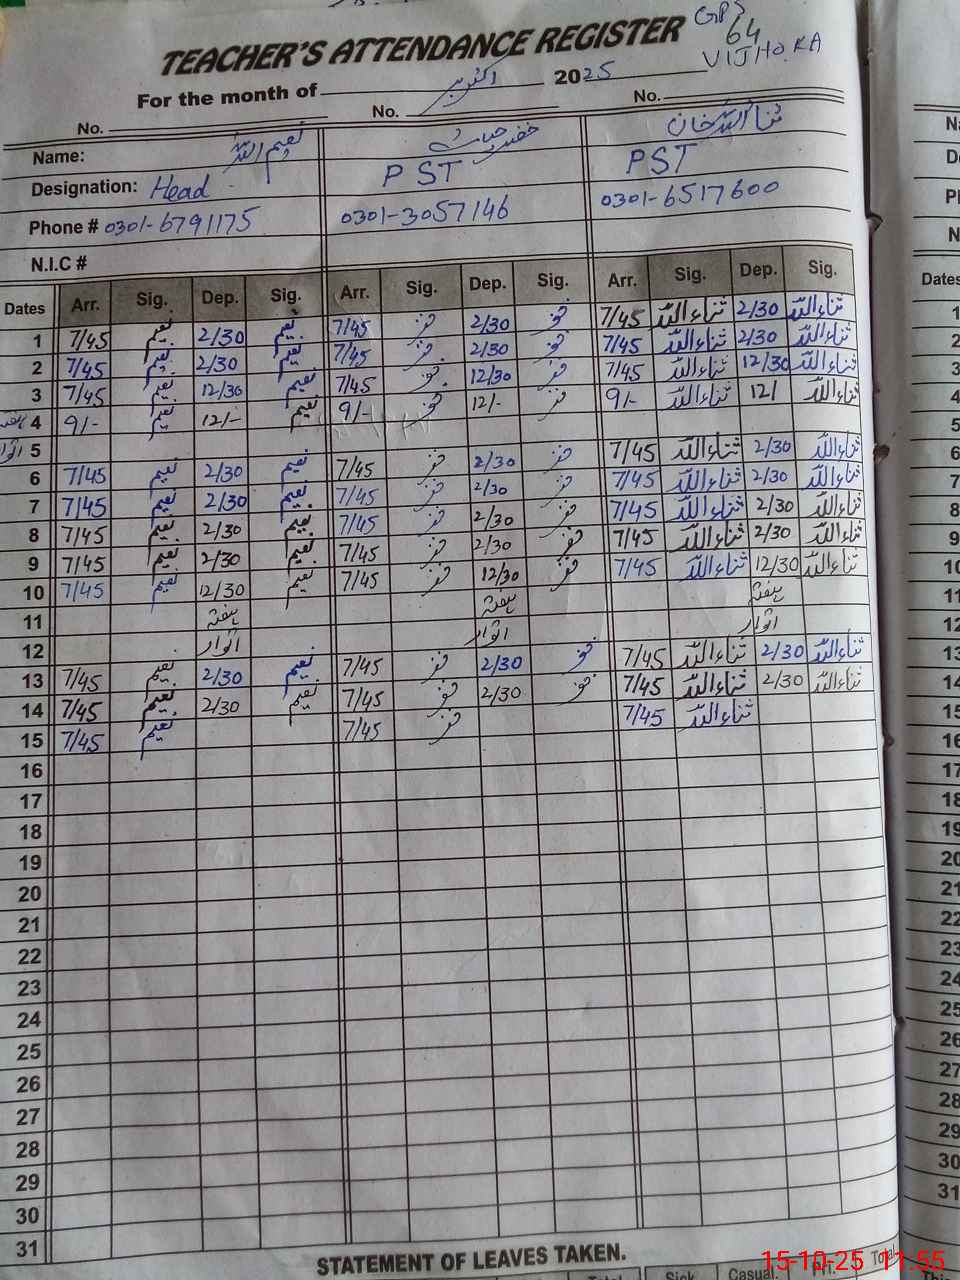 GPS
64
VIJHOKA
TEACHER'S ATTENDANCE REGISTER
For the month of اکتوبر 2025
No. No. No.
Name: نعیم اللہ خضر حیات ثناءاللہ خان
Designation: Head PST PST
Phone # 0301-6791175 0301-3057146 0301-6517600
N.I.C #
Dates Arr. Sig. Dep. Sig. Arr. Sig. Dep. Sig. Arr. Sig. Dep. Sig.
1 7/45 نعیم 2/30 نعیم 7/45 2/30 7/45 ثناءاللہ 2/30 ثناءاللہ
2 7/45 نعیم 2/30 نعیم 7/45 2/30 7/45 ثناءاللہ 2/30 ثناءاللہ
3 7/45 نعیم 12/30 نعیم 7/45 12/30 7/45 ثناءاللہ 12/30 ثناءاللہ
ہفتہ 4 9/- نعیم 12/- نعیم 9/- 12/- 9/- ثناءاللہ 12/ ثناءاللہ
اتوار 5
6 7/45 نعیم 2/30 نعیم 7/45 2/30 7/45 ثناءاللہ 2/30 ثناءاللہ
7 7/45 نعیم 2/30 نعیم 7/45 2/30 7/45 ثناءاللہ 2/30 ثناءاللہ
8 7/45 نعیم 2/30 نعیم 7/45 2/30 7/45 ثناءاللہ 2/30 ثناءاللہ
9 7/45 نعیم 2/30 نعیم 7/45 2/30 7/45 ثناءاللہ 2/30 ثناءاللہ
10 7/45 نعیم 12/30 نعیم 7/45 12/30 7/45 ثناءاللہ 12/30 ثناءاللہ
11 ہفتہ ہفتہ ہفتہ
12 اتوار اتوار اتوار
13 7/45 نعیم 2/30 نعیم 7/45 2/30 7/45 ثناءاللہ 2/30 ثناءاللہ
14 7/45 نعیم 2/30 نعیم 7/45 2/30 7/45 ثناءاللہ 2/30 ثناءاللہ
15 7/45 نعیم 7/45 7/45 ثناءاللہ
16
17
18
19
20
21
22
23
24
25
26
27
28
29
30
31
STATEMENT OF LEAVES TAKEN.
Total Sick Casual. Total
15-10-25 11:55